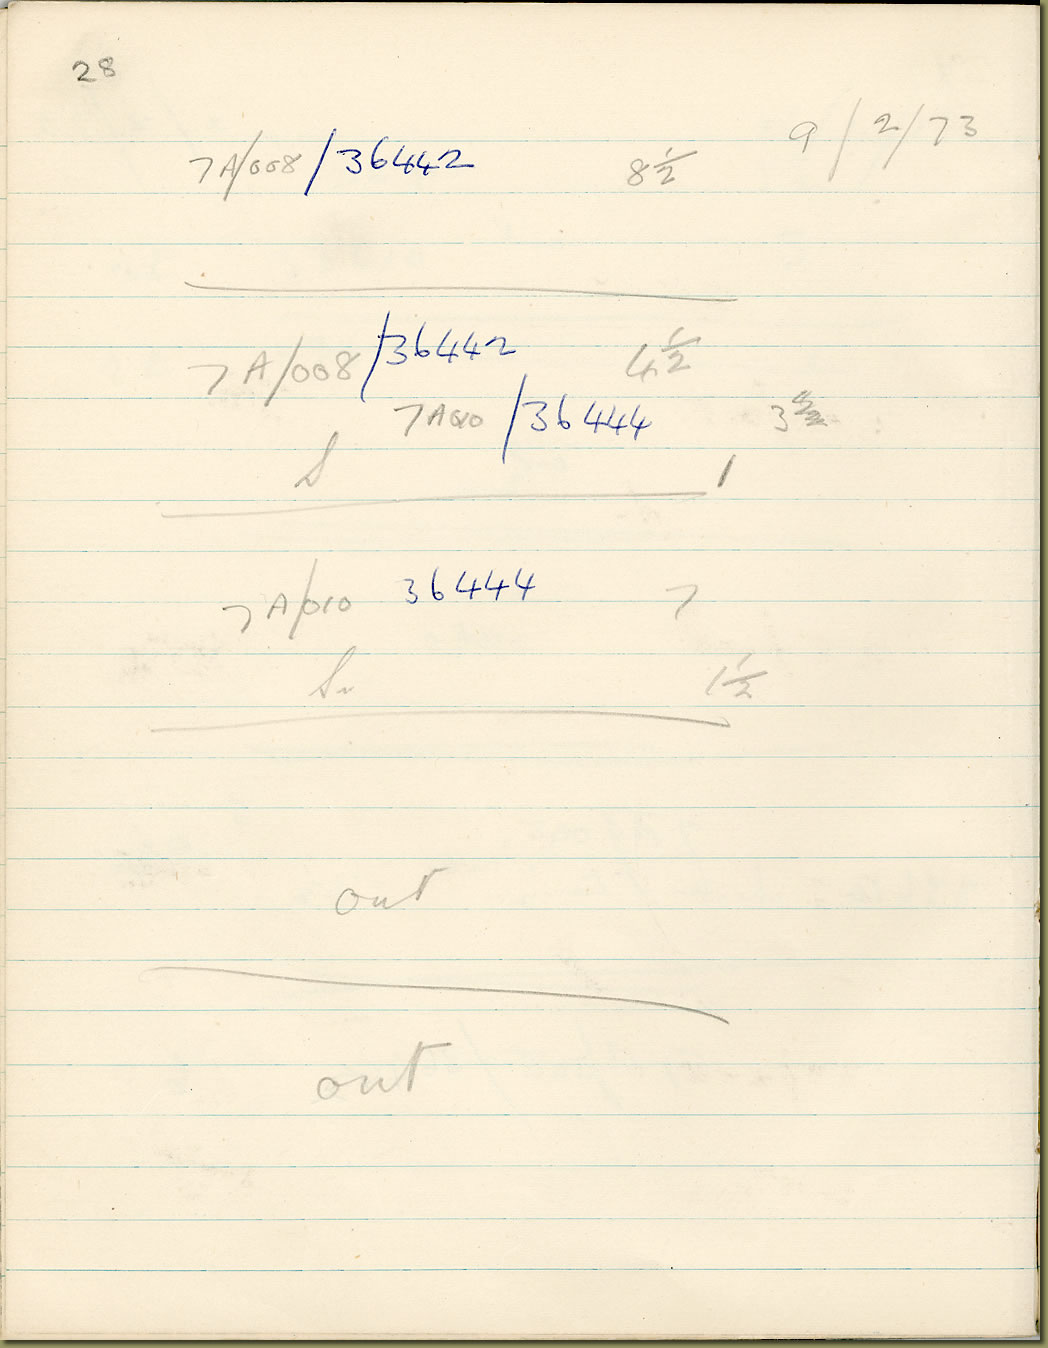 28
9/2/73
7A/008/36442 8½
7A/008/36442 4½
7A010/36444 3
S 1
7A/010 36444 7
S 1½
out
out